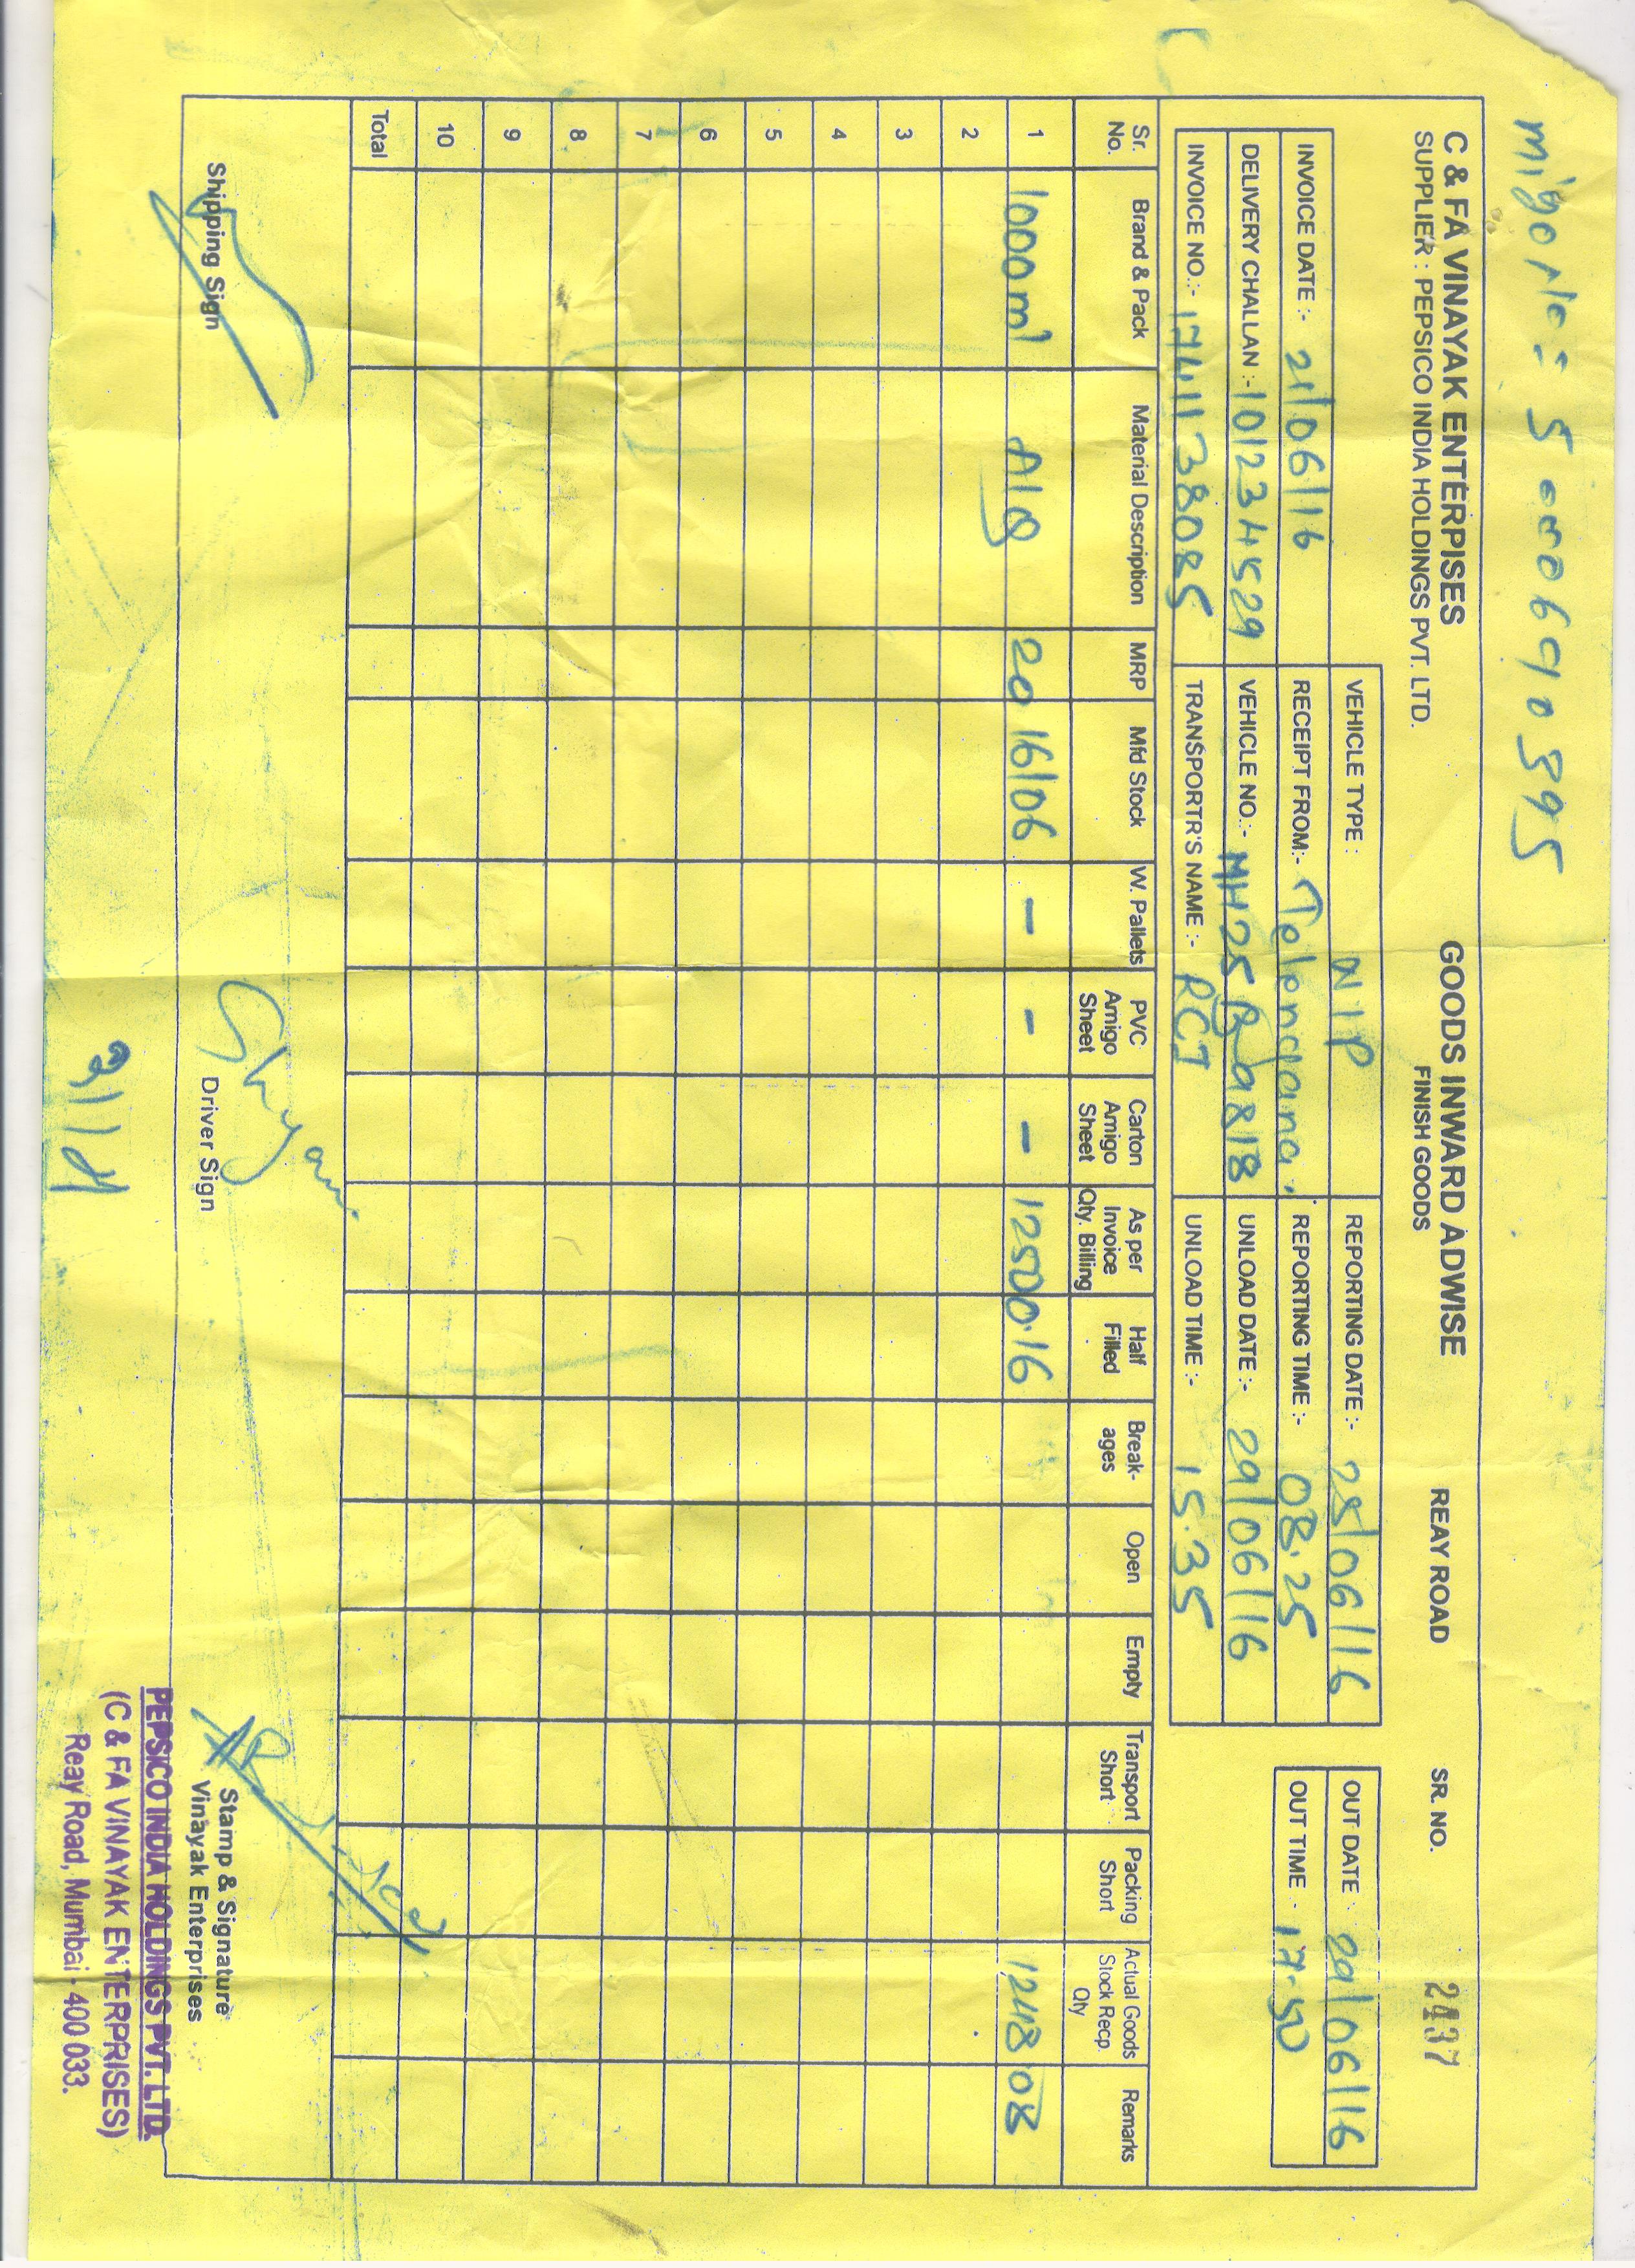 C & FA VINAYAK ENTERPISES
SUPPLIER : PEPSICO INDIA HOLDINGS PVT. LTD.
GOODS INWARD ADWISE
FINISH GOODS
REAY ROAD
SR. NO. 2437
INVOICE DATE :- 21/06/16
DELIVERY CHALLAN :- 101234529
INVOICE NO.:- 1741138085
VEHICLE TYPE : NIP
RECEIPT FROM:-
VEHICLE NO.:-
TRANSPORTR'S NAME :-
REPORTING DATE :- 28/06/16
REPORTING TIME :- 08.25
UNLOAD DATE :- 29/06/16
UNLOAD TIME :- 15.35
OUT DATE : 29/06/16
OUT TIME : 17.50
Sr. No. Brand & Pack Material Description MRP Mfd Stock W. Pallets PVC Amigo Sheet Carton Amigo Sheet As per Invoice Qty. Billing Half Filled Break-ages Open Empty Transport Short Packing Short Actual Goods Stock Recp. Qty Remarks
1 1000ml AlQ 20 16/06 – – – 1250 0.16 1248 08
2
3
4
5
6
7
8
9
10
Total
Shipping Sign
Shyam
Driver Sign
Stamp & Signature
Vinayak Enterprises
PEPSICO INDIA HOLDINGS PVT. LTD.
(C & FA VINAYAK ENTERPRISES)
Reay Road, Mumbai - 400 033.